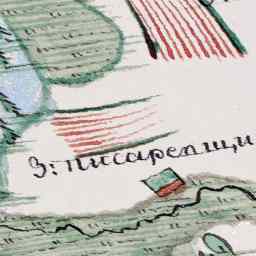 З: писарепщи